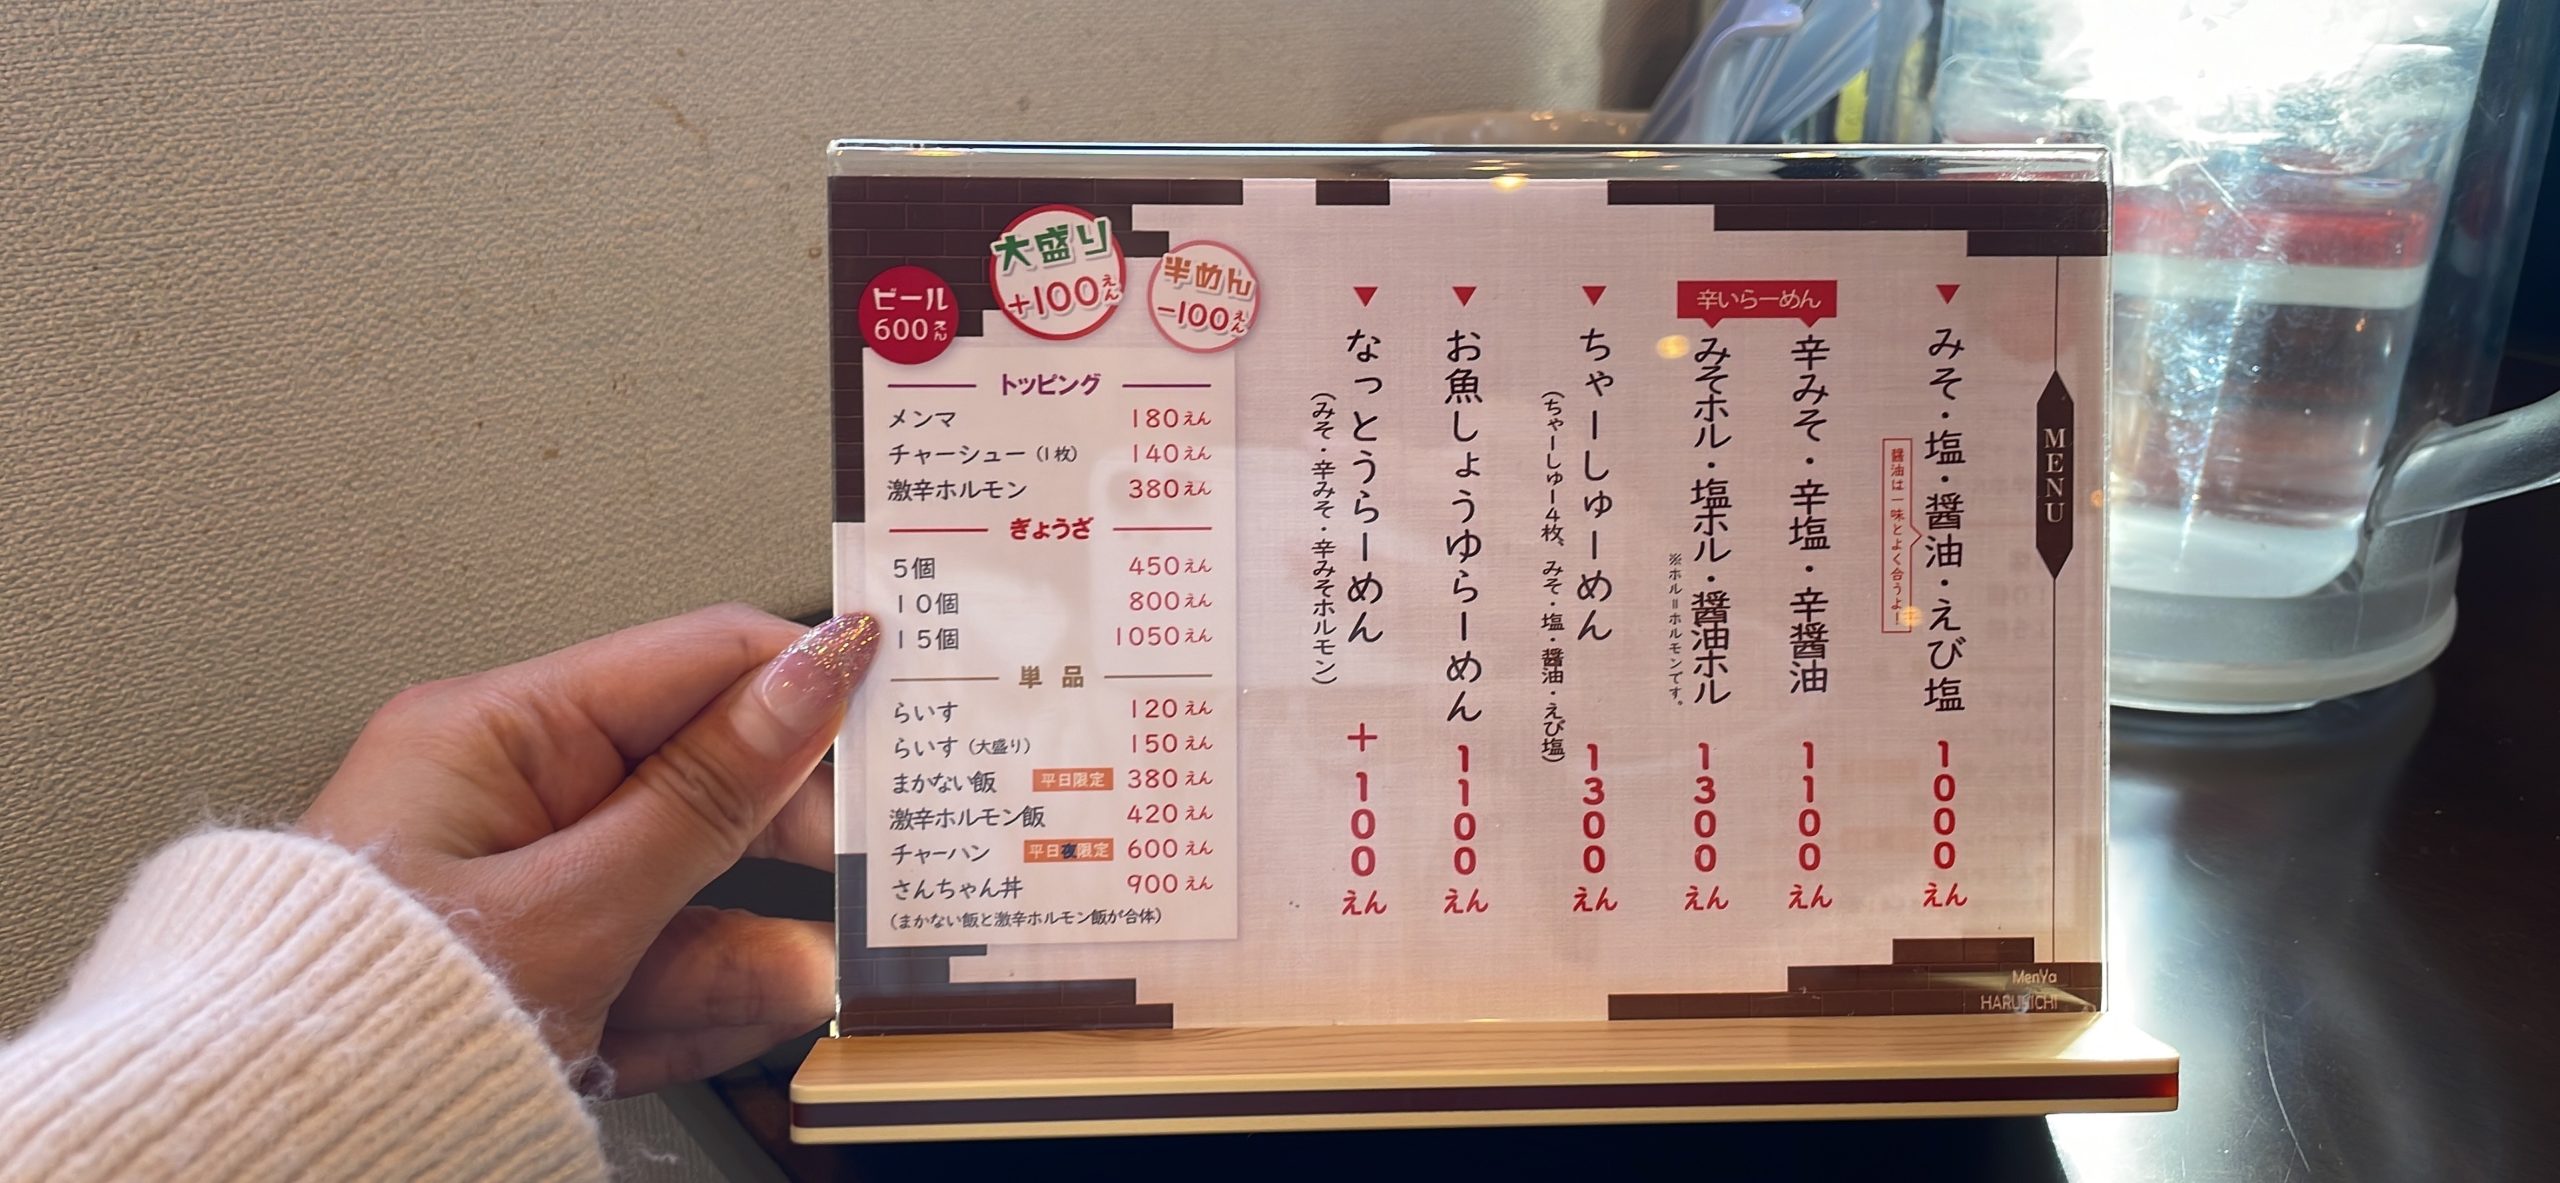 MENU
みそ・塩・醤油・えび塩 1000えん
醤油は一味とよく合うよ!
辛いらーめん
辛みそ・辛塩・辛醤油 1100えん
みそホル・塩ホル・醤油ホル 1300えん
※ホル=ホルモンです。
ちゃーしゅーめん 1300えん
(ちゃーしゅー4枚、みそ・塩・醤油・えび塩)
お魚しょうゆらーめん 1100えん
なっとうらーめん +100えん
(みそ・辛みそ・辛みそホルモン)
ビール
600えん
大盛り
+100えん
半めん
-100えん
トッピング
メンマ 180えん
チャーシュー(1枚) 140えん
激辛ホルモン 380えん
ぎょうざ
5個 450えん
10個 800えん
15個 1050えん
単品
らいす 120えん
らいす(大盛り) 150えん
まかない飯 平日限定 380えん
激辛ホルモン飯 420えん
チャーハン 平日夜限定 600えん
さんちゃん丼 900えん
(まかない飯と激辛ホルモン飯が合体)
MenYa